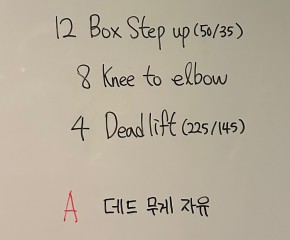 12 Box Step up (50/35)
8 Knee to elbow
4 Deadlift (225/145)
A 데드 무게 자유